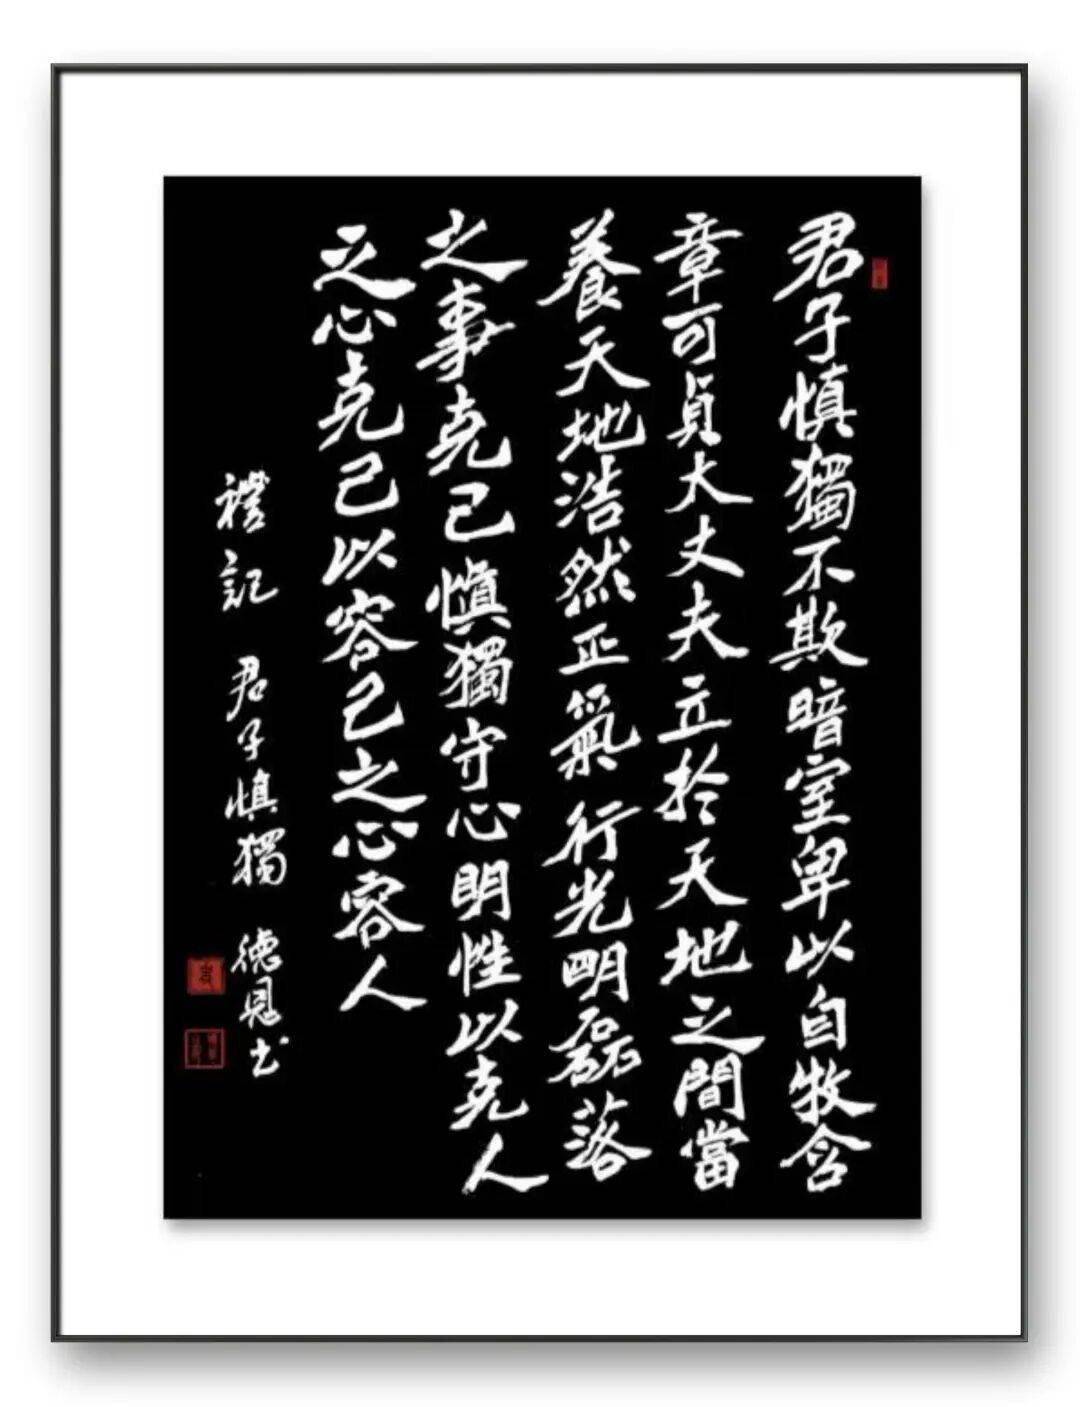 君子慎獨不欺暗室卑以自牧含
章可貞大丈夫立於天地之間當
養天地浩然正氣行光明磊落
之事克己慎獨守心明性以克人
之心克己以容己之心容人
禮記 君子慎獨 德恩书